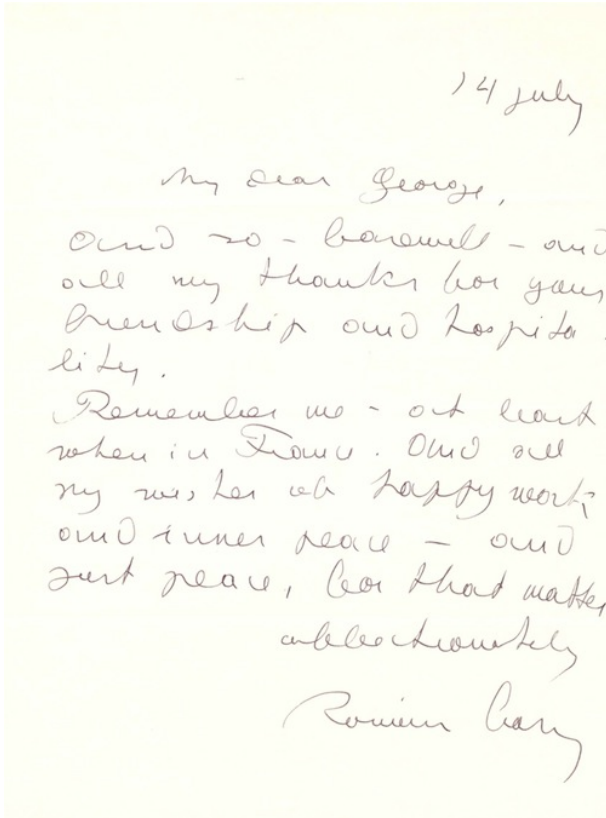 14 July
My dear George,
and so - farewell - and
all my thanks for your
friendship and hospita-
lity.
Remember me - at least
when in France. And all
my wishes of happy work,
and inner peace - and
just peace, for that matter
affectionately
Romain Gary